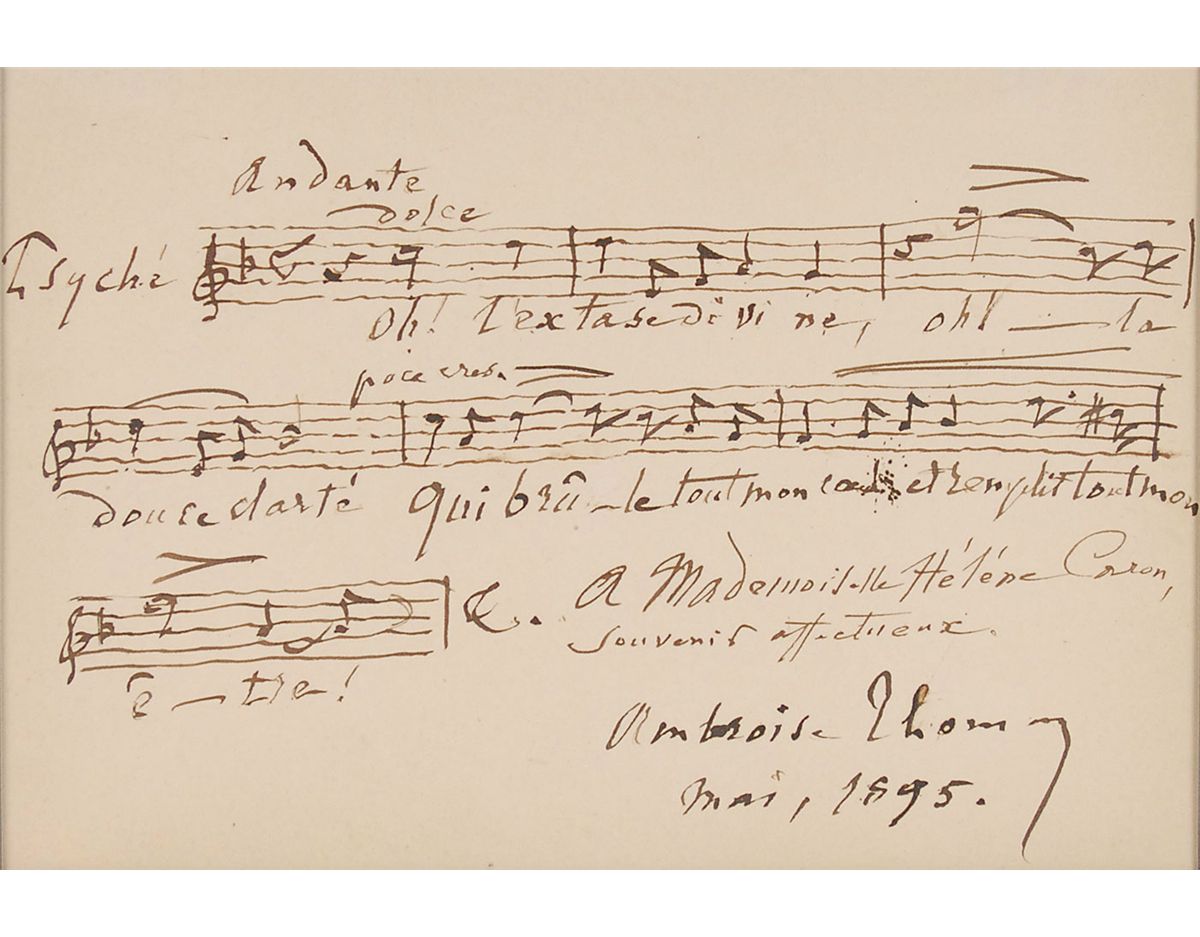 Andante
dolce
Psyché
Oh! l'extase divine, oh! — la
poco cres.
douce clarté qui brû-le tout mon cœur et remplit tout mon
ê — tre!
&.
A Mademoiselle Hélène Caron,
souvenir affectueux.
Ambroise Thomas
mai, 1895.